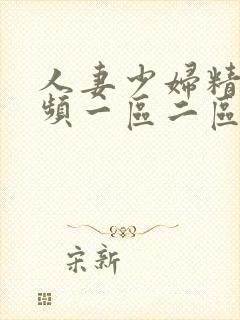 人妻少婦精
頻一區二區
宋新